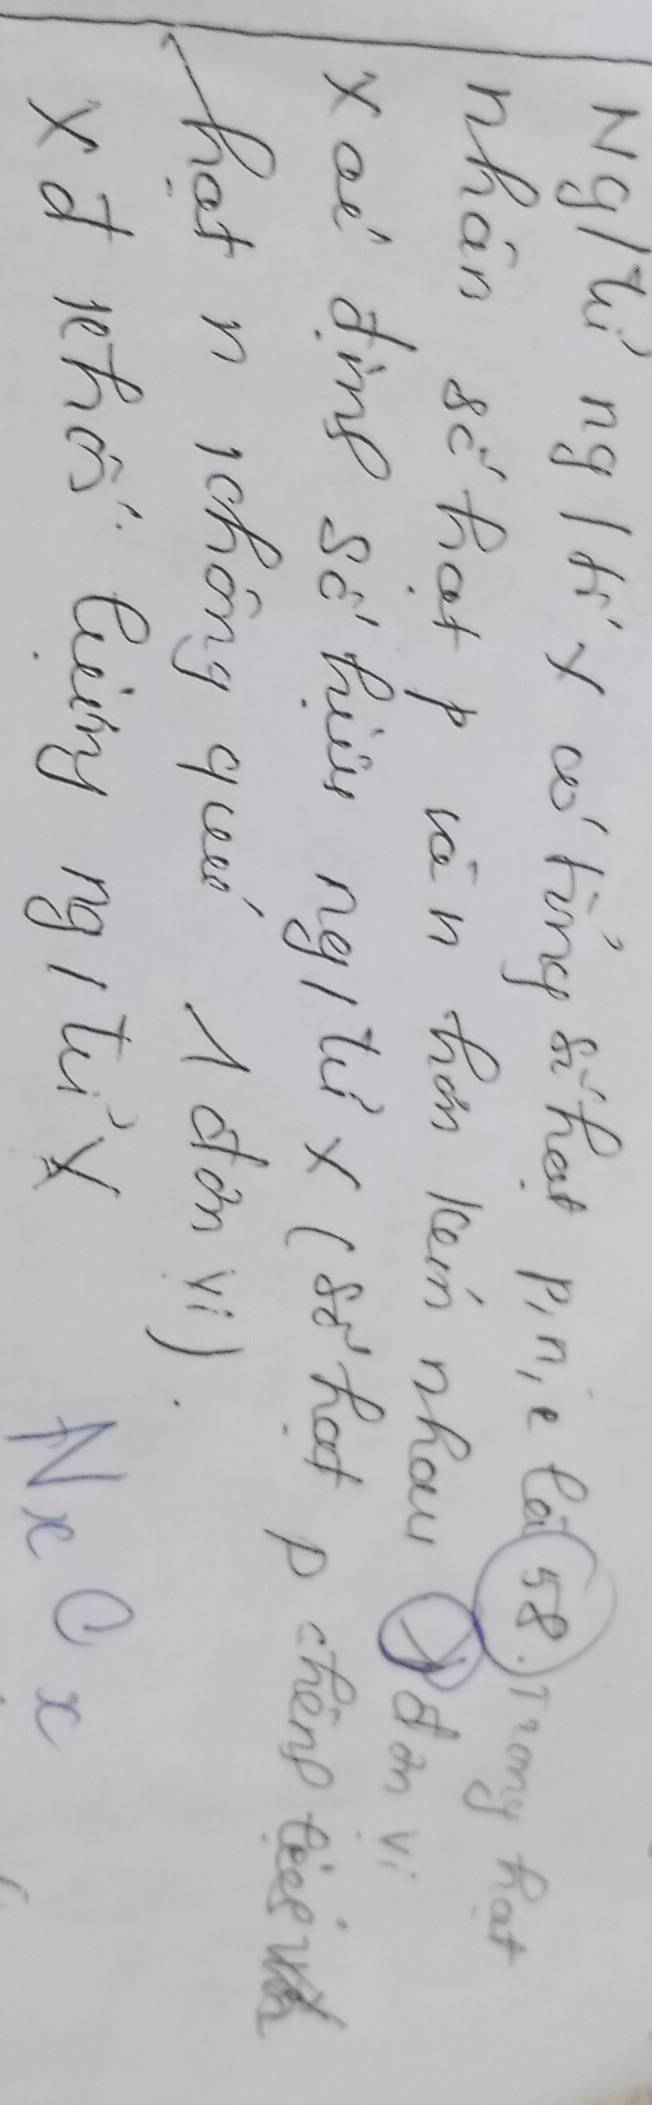 Ng/tử ng/tố X có tổng số hạt p, n, e là 58. Trong hạt
nhân số hạt p và n hơn kém nhau 1 đơn vị
Xác định số hiệu ng/tử X (số hạt p chênh lệch với
hạt n không quá 1 đơn vị).
Xđ khối lượng ng/tử X